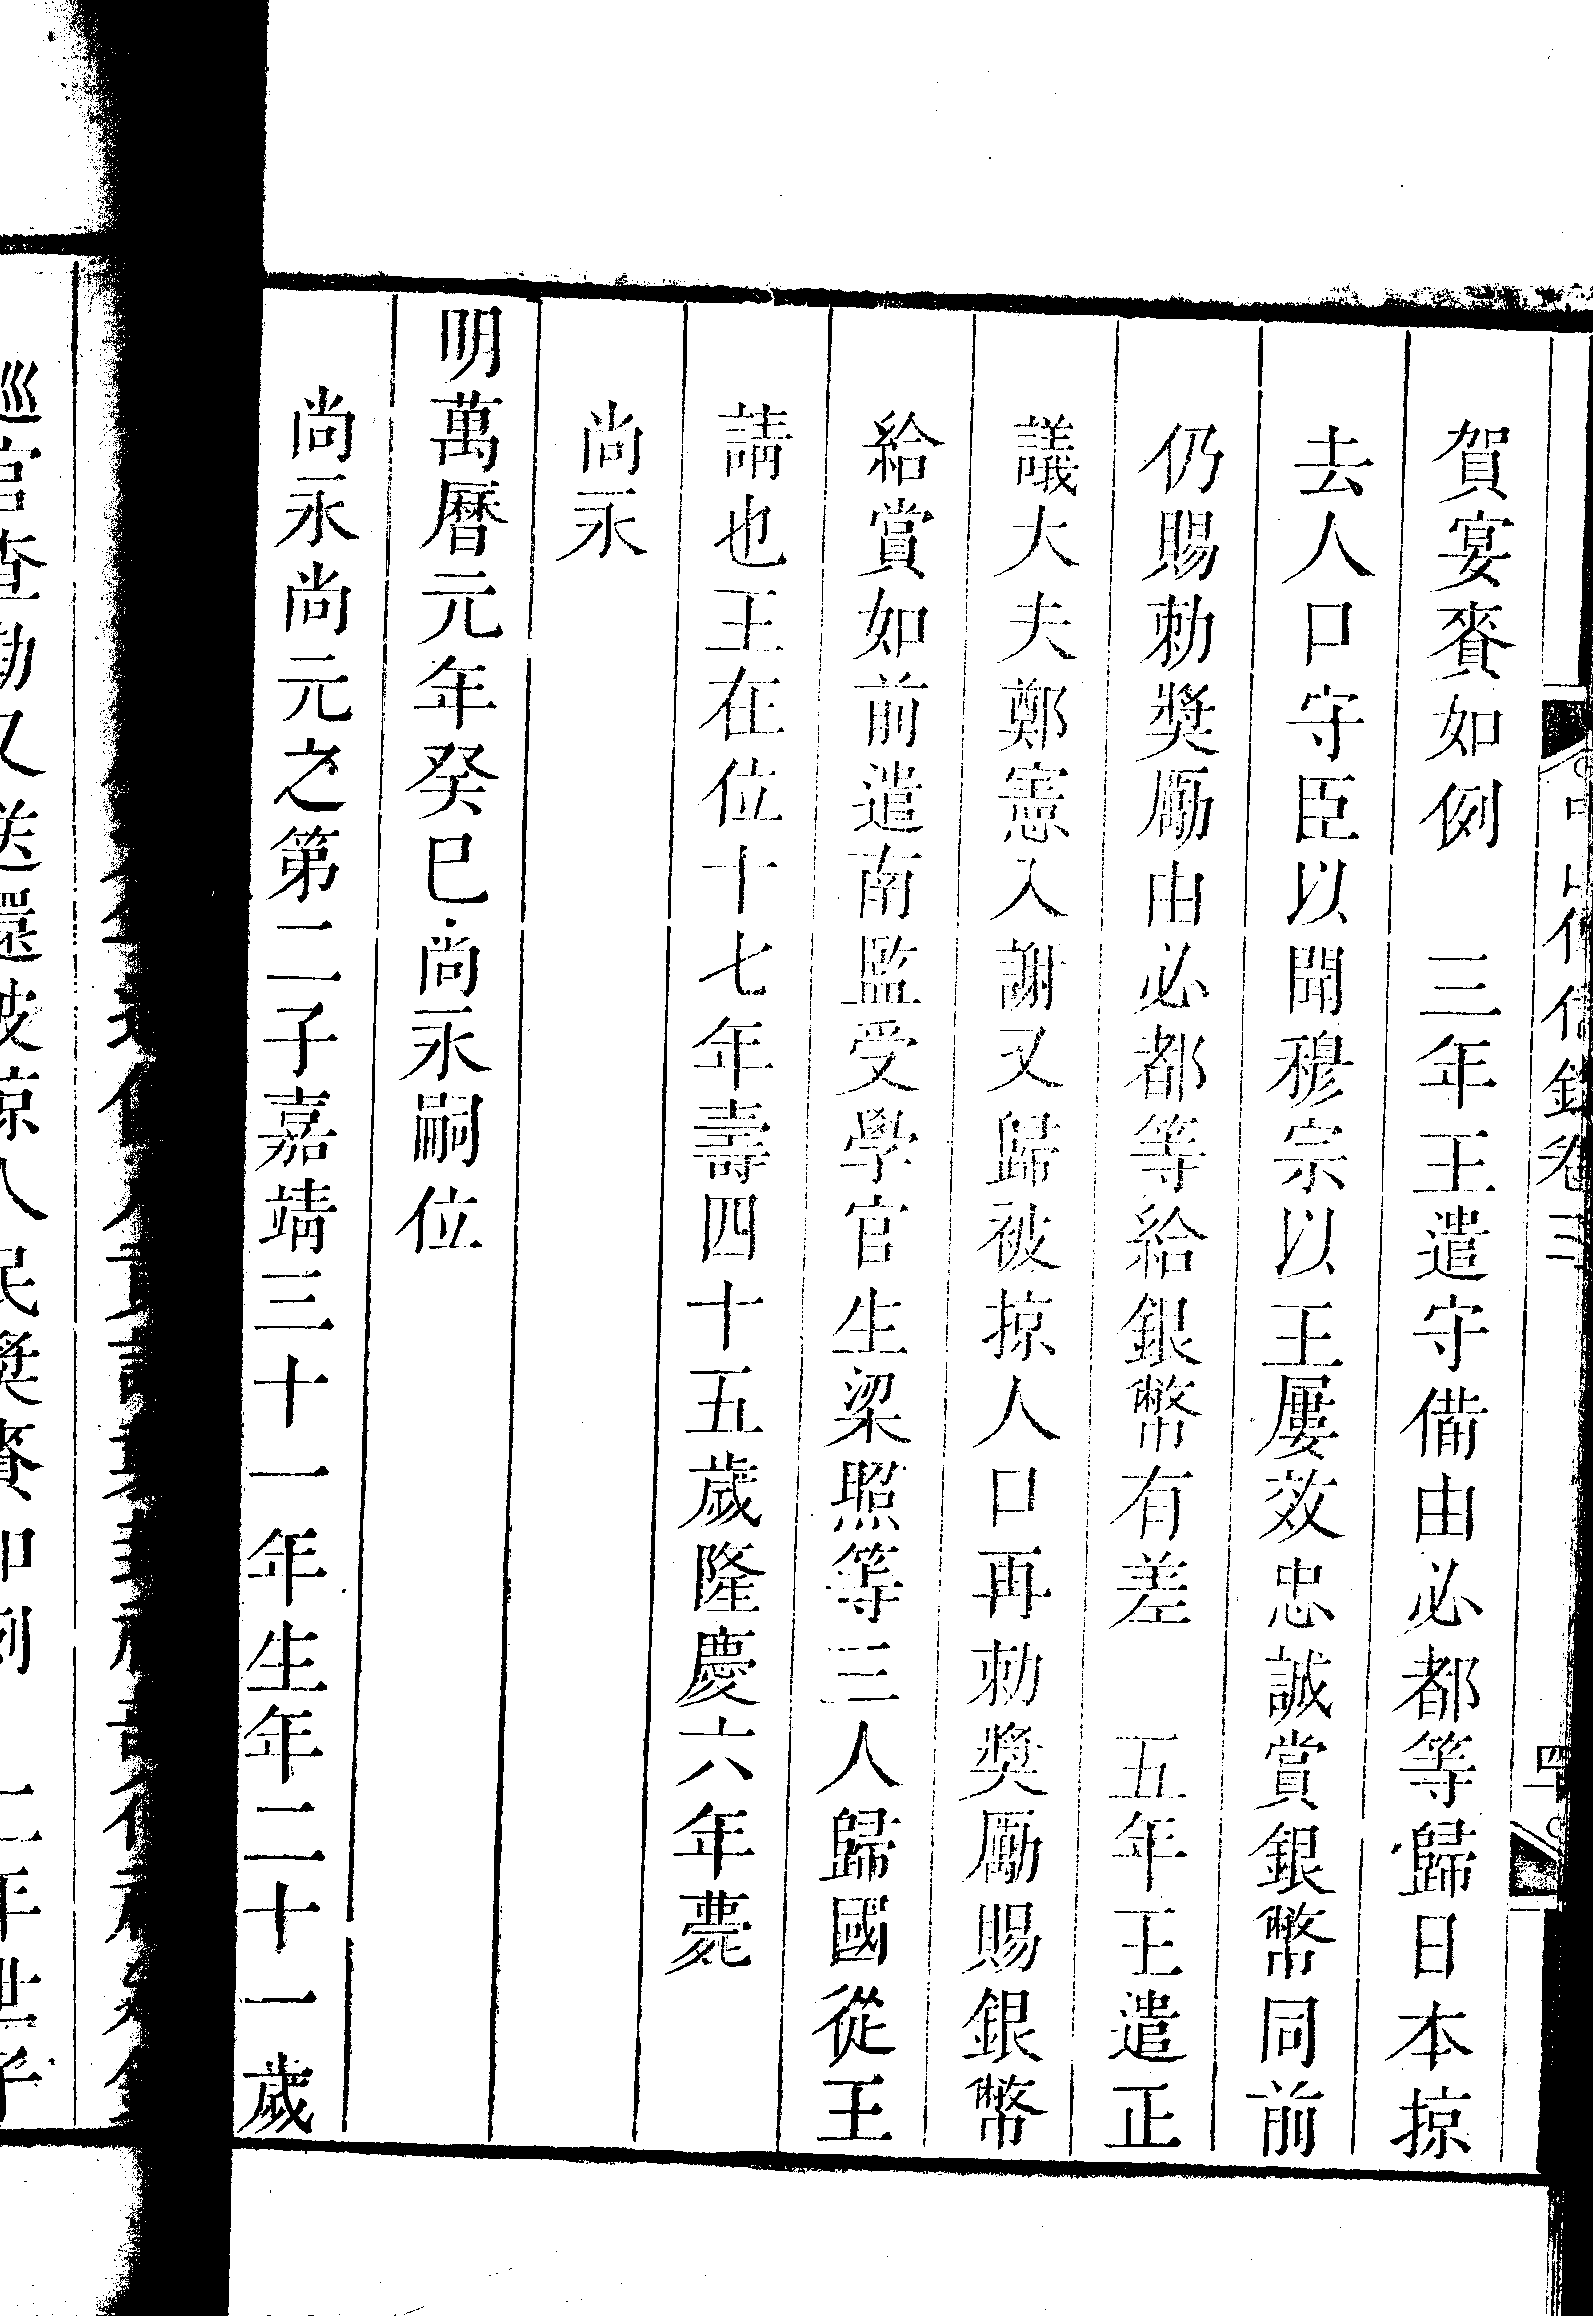 賀宴賚如例　三年王遣守備由必都等歸日本掠
去人口守臣以聞穆宗以王屢效忠誠賞銀幣同前
仍賜勅獎勵由必都等給銀幣有差　五年王遣正
議大夫鄭憲入謝又歸被掠人口再勅獎勵賜銀幣
給賞如前遣南監受學官生梁照等三人歸國從王
請也王在位十七年壽四十五歲隆慶六年薨
尚永
明萬曆元年癸巳尚永嗣位
尚永尚元之第二子嘉靖三十一年生年二十一歲
又送還被掠人民獎賚如例　二年世子